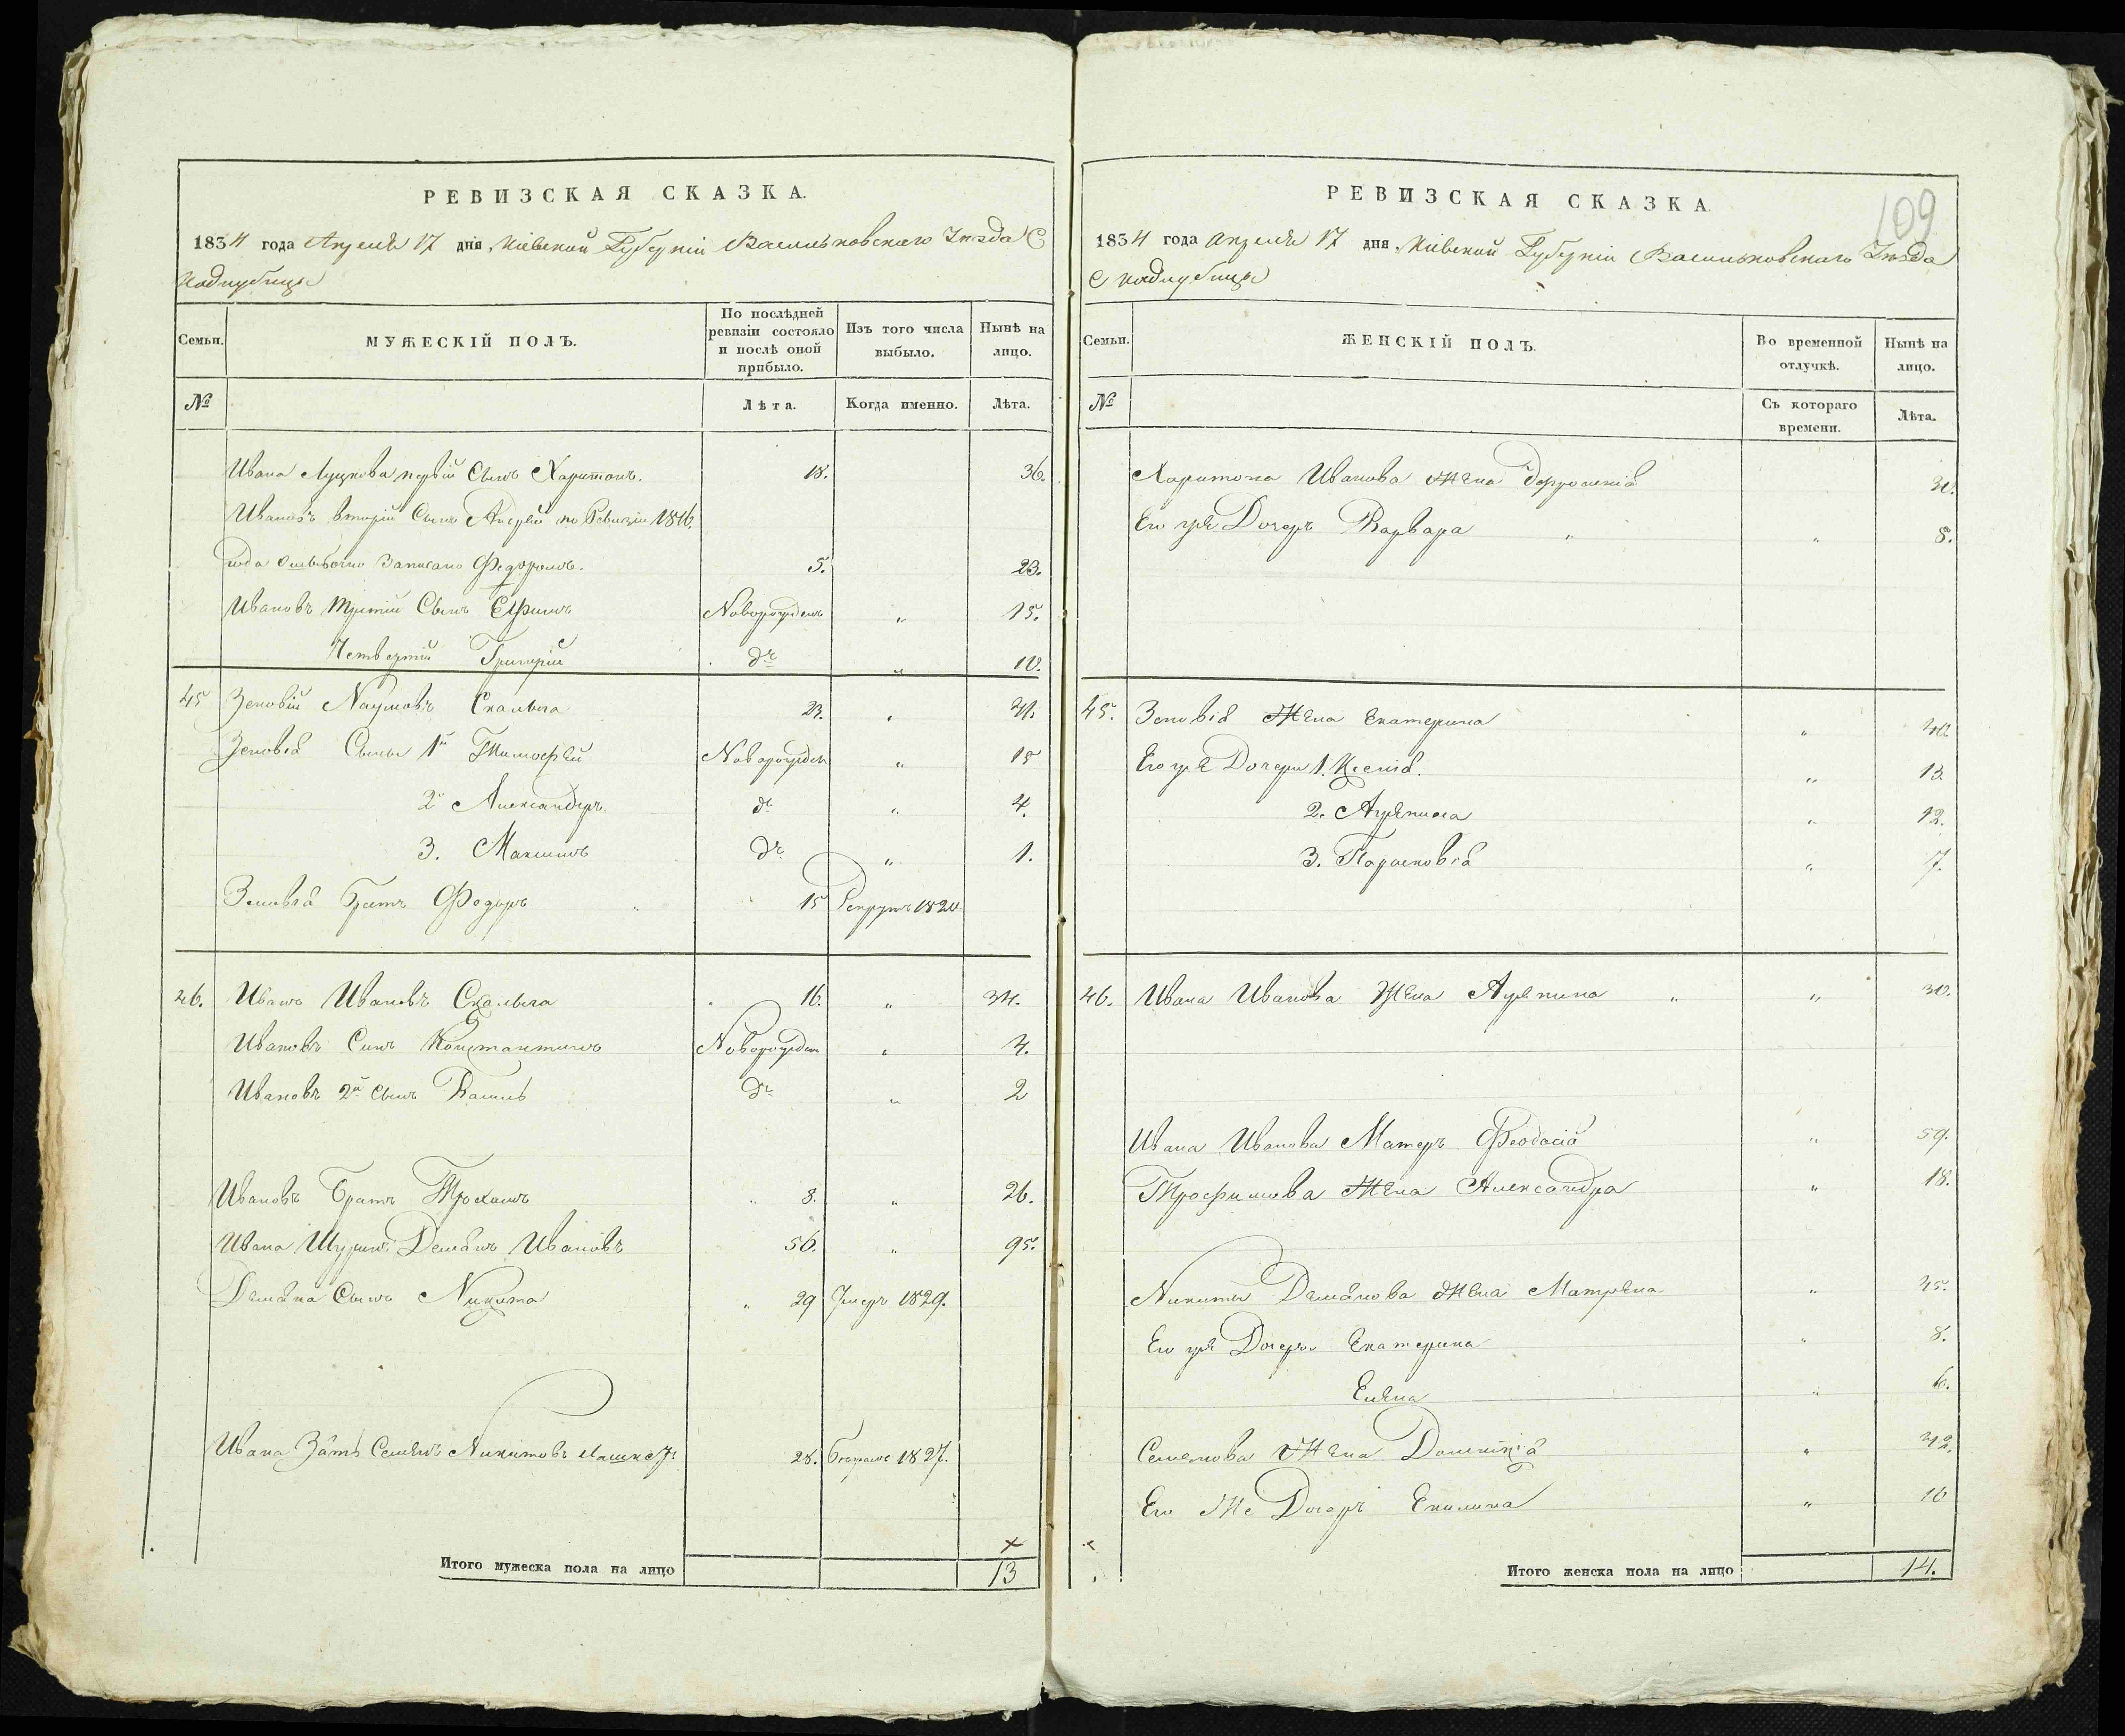 РЕВИЗСКАЯ СКАЗКА.
1834 года Апреля 17 дня, Кіевской Губерніи Васильковскаго Уезда С
Кодлубицы
Семьи.
МУЖЕСКІЙ ПОЛЪ.
По послѣдней
ревизіи состояло
и послѣ оной
прибыло.
Изъ того числа
выбыло.
Нынѣ на
лицо.
№
Лѣта.
Когда именно.
Лѣта.
Ивана первій Сынъ Харитонъ. 18. 36.
Ивановъ вторій Сынъ Андрей по Ревизіи 1816.
года ошибочно записано Федоромъ. 5. 23.
Ивановъ третій Сынъ Ефимъ Новорожденъ " 15.
Четвертій Григорій дº " 10.
45 Зеновій Наумовъ Скалыга 23. " 41.
Зеновія Сыны 1й Тимофей Новорожден " 15
2й Александръ. дº " 4.
3. Максимъ дº " 1.
Зеновія братъ Федоръ 15 Рекрутъ 1820
46. Иванъ Ивановъ Скалыга 16. " 34.
Ивановъ Сынъ Константинъ Новорожден " 4.
Ивановъ 2й Сынъ Василь дº " 2
Ивановъ братъ Трохимъ 8. " 26.
Ивана Шуринъ Демянъ Ивановъ 56. " 95.
Демяна Сынъ Никита " 29 Умеръ 1829.
Ивана Зять Семенъ Никитовъ 28. 1827.
×
Итого мужеска пола на лицо 13
109
РЕВИЗСКАЯ СКАЗКА.
1834 года Апреля 17 дня, Кіевской Губерніи Васильковскаго Уезда
С Кодлубицы
Семьи.
ЖЕНСКІЙ ПОЛЪ.
Во временной
отлучкѣ.
Нынѣ на
лицо.
№
Съ котораго
времени.
Лѣта.
Харитона Иванова Жена
Его же Дочерь Варвара " " 8.
45. Зеновія Жена Екатерина " 40.
Его же Дочери 1. Ксенія. " 13.
2. Агрепина " 12.
3. Парасковія " 7.
46. Ивана Иванова Жена Агрепина " " 30.
Ивана Иванова Матерь Феодосія " 59.
Трофимова Жена Александра " 18.
Никиты Демянова Жена Матрена " 45.
Его же Дочерь Екатерина " 8.
Елена " 6.
Семенова Жена Домникія " 42.
Его Же Дочерь Екилина " 10
Итого женска пола на лицо 14.